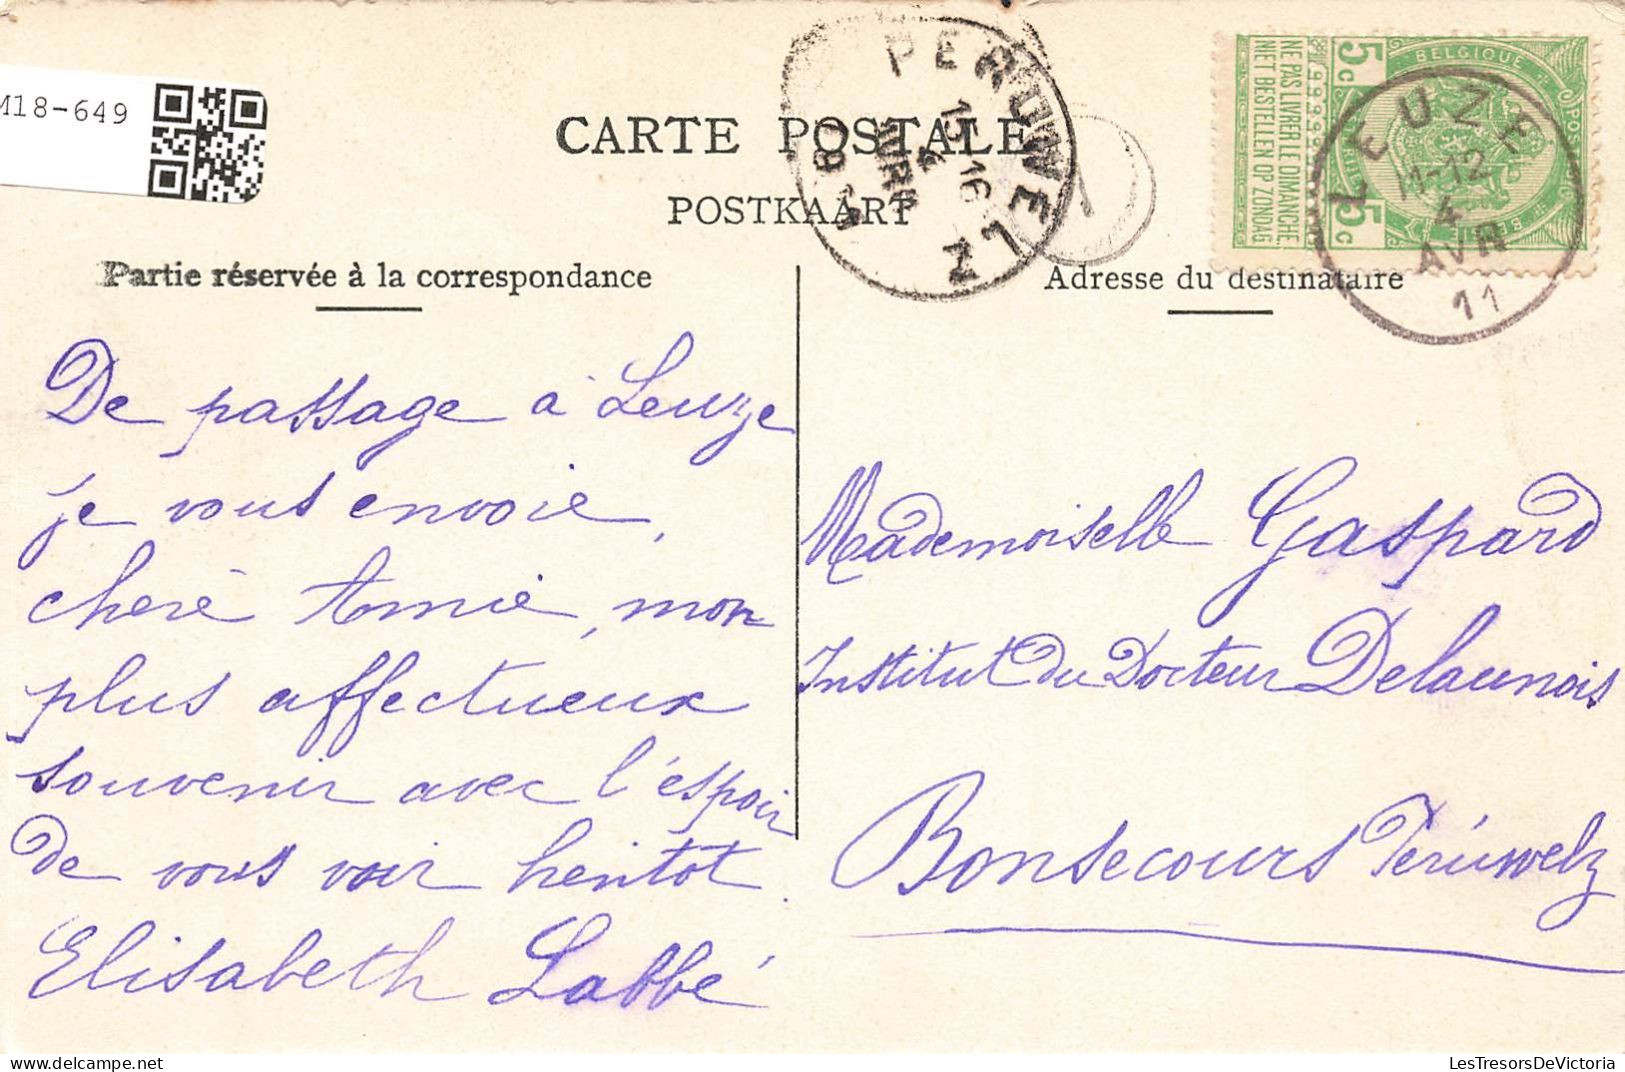 M18-649
CARTE POSTALE
POSTKAART
PERUWELZ
15-16
4
AVRIL
1911
5c 5c
BELGIQUE
NE PAS LIVRER LE DIMANCHE
NIET BESTELLEN OP ZONDAG
LEUZE
11-12
4
AVR
11
Partie réservée à la correspondance
Adresse du destinataire
De passage à Leuze
je vous envoie,
chère Amie, mon
plus affectueux
souvenir avec l'espoir
de vous voir bientot.
Elisabeth Labbé
Mademoiselle Gaspard
Institut du Docteur Delaunois
Bonsecours Péruwelz
LesTresorsDeVictoria